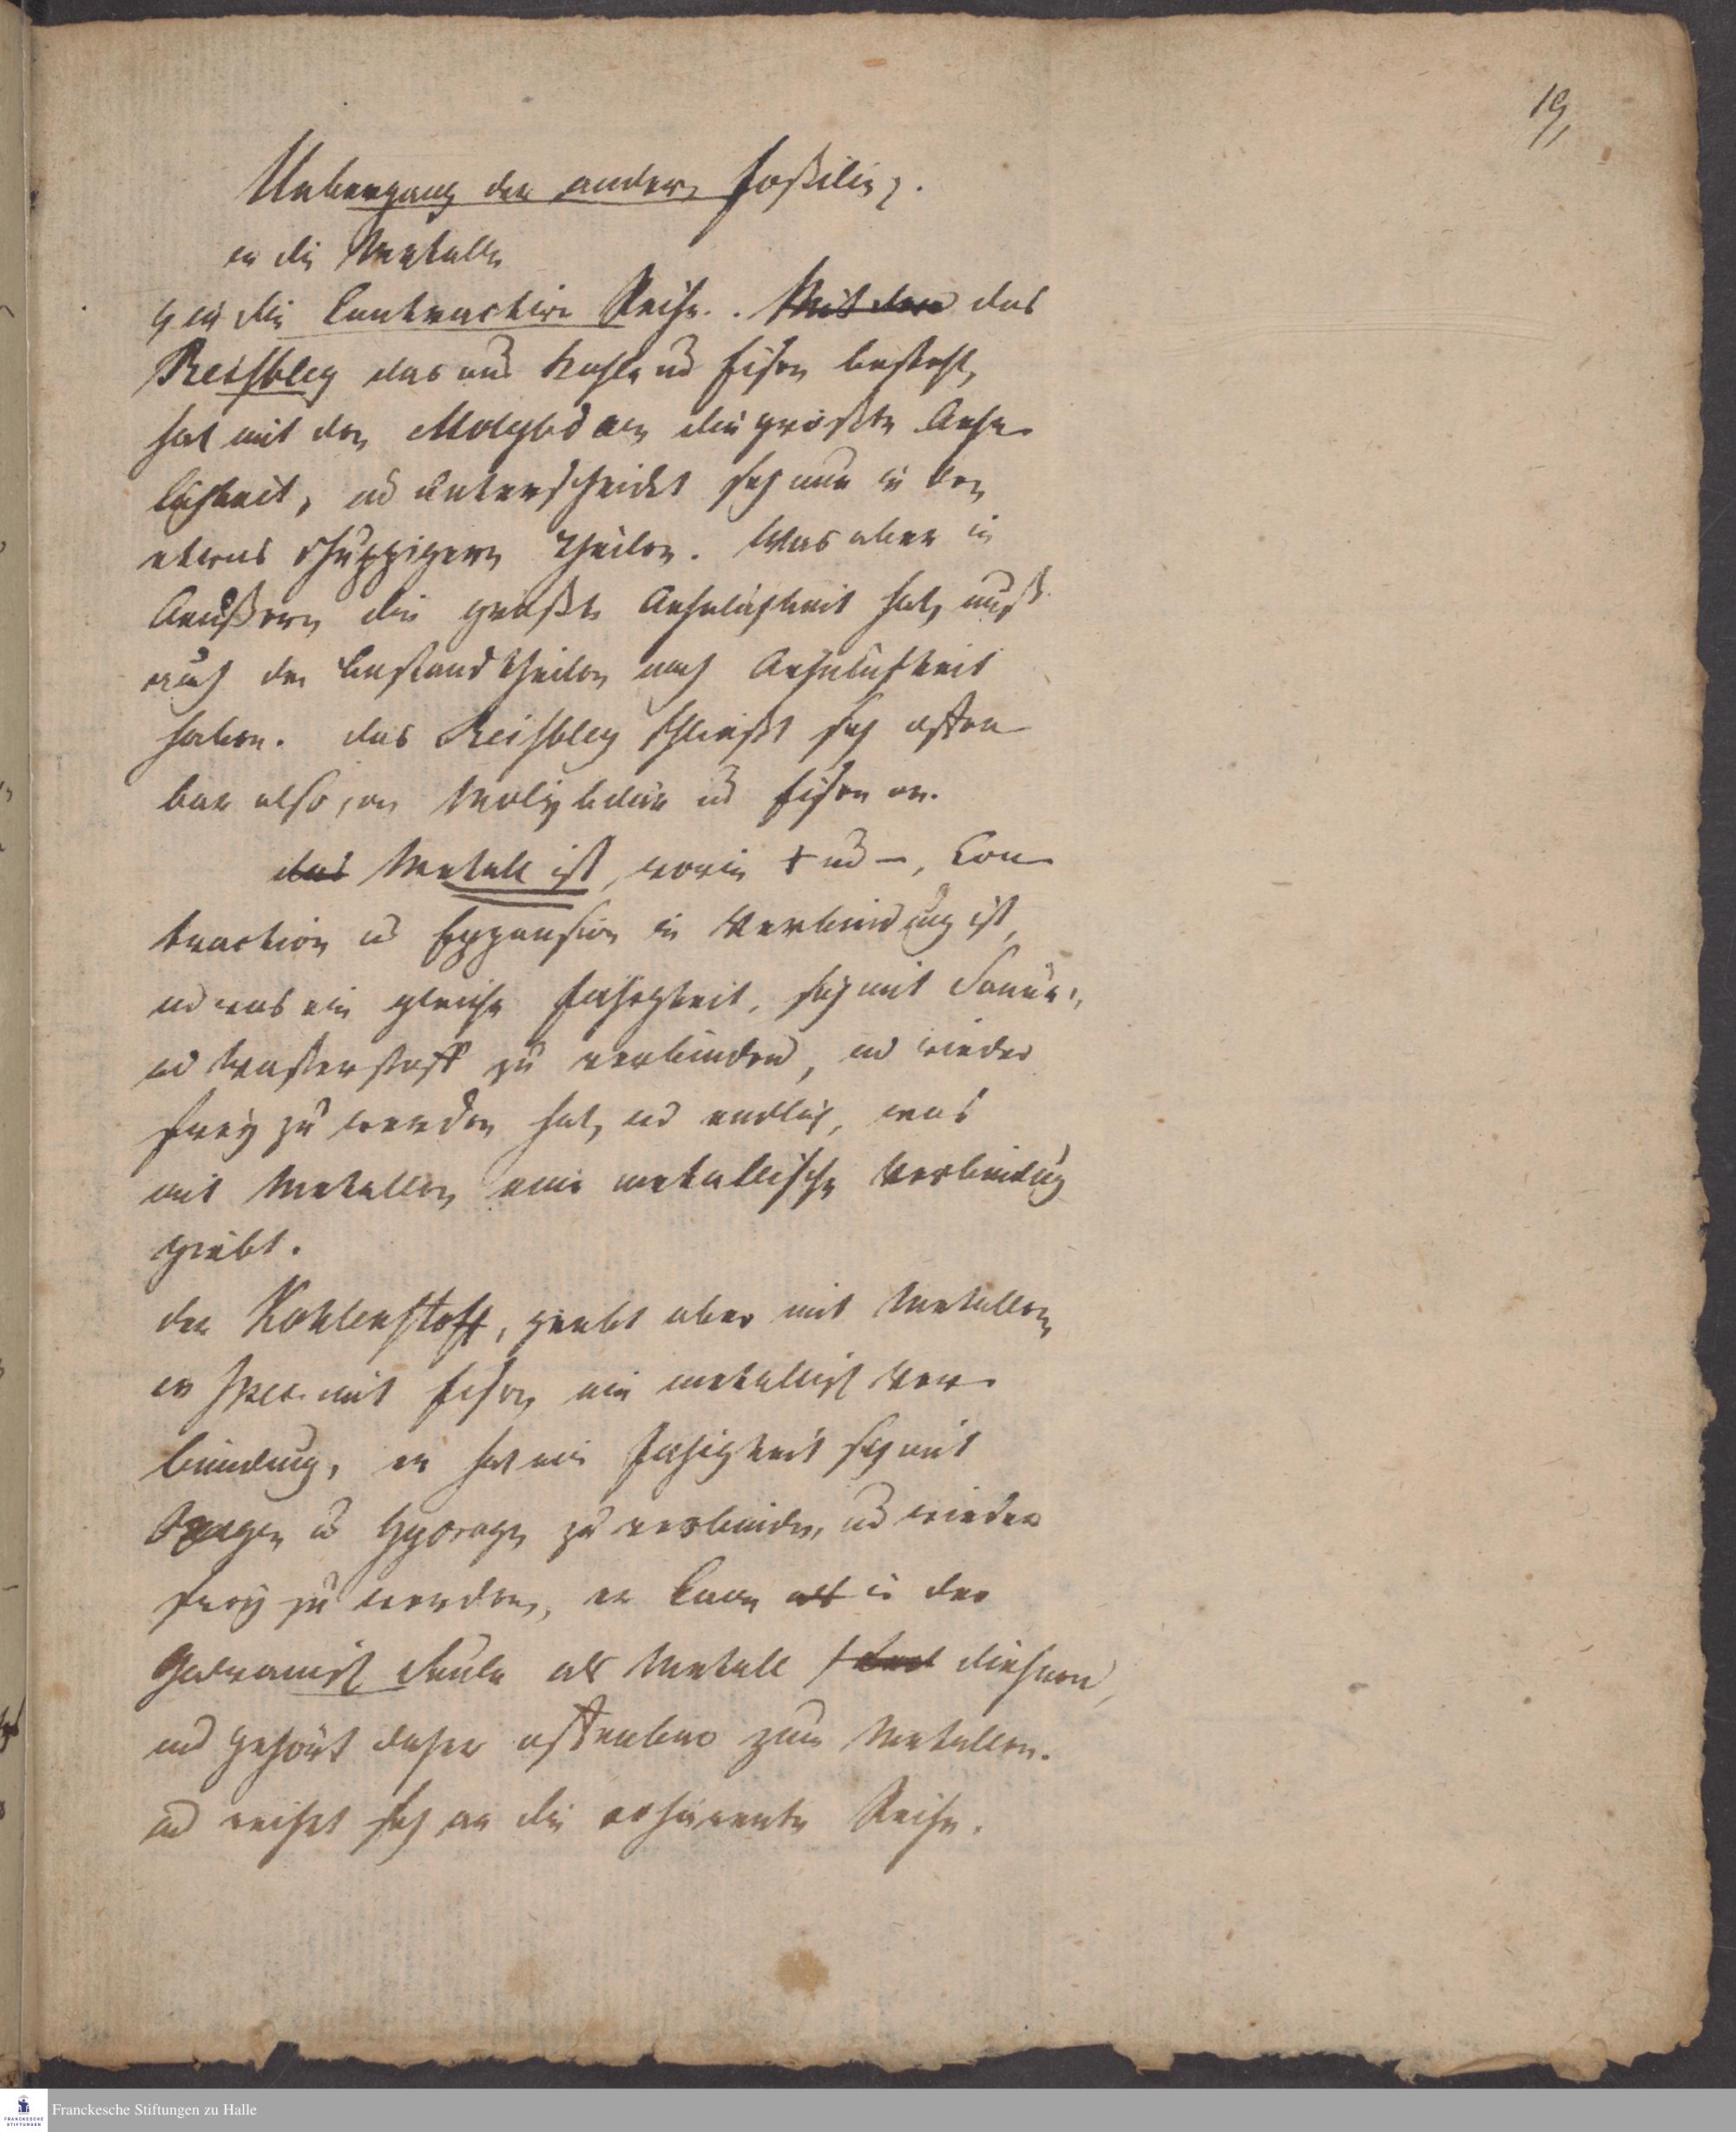 19,
Uebergang der andern Foßilien
an die Metalle
in die Contractive Reihe. Mit dem das
Reißbley das aus Kohle und Eisen besteht,
hat mit den Molybdän die größte Aehn-
lichkeit, und unterscheidet sich nur in den
etwas schuppigern Theilen. Was aber in
Aeußern die größte Aehnlichkeit hat, muß
auch den Bestandtheilen nach Aehnlichkeit
haben. das Reisbley schließt sich offen-
bar also, an Molybdän und Eisen an.
das Metall ist, worin + und –, Con-
traction und Expansion in Verbindung ist,
und was ein gleiche Fähigkeit, sich mit Sauer-,
und Wasserstoff zu verbinden, und wieder
frey zu werden hat, und endlich, was
mit Metallen eine metallische Verbindung
giebt.
der Kohlenstoff, giebt aber mit Metallen
in spec. mit Eisen ein metallisch Ver-
bindung, er hat ein Fähigkeit sich mit
Oxygen und Hydrogen zu verbinden, und wieder
frey zu werden, er kann als in der
Galvanisch Säule als Metall dienen,
und gehört daher offenbar zum Metallen.
und reihet sich an die cohärente Reihe.
Franckesche Stiftungen zu Halle